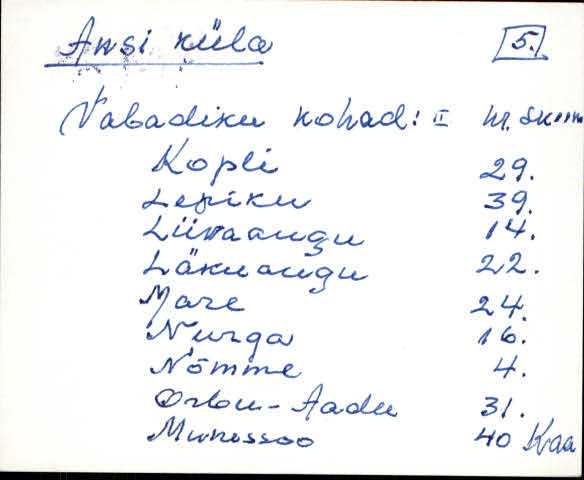 Ansi küla 5.
Vabadiku kohad: II nr.
Kopli 29.
Lepiku 39.
Liivaaugu 14.
Läkuaugu 22.
Mare 24.
Nurga 16.
Nõmme 4.
Orbu-Aadu 31.
40 Kaa